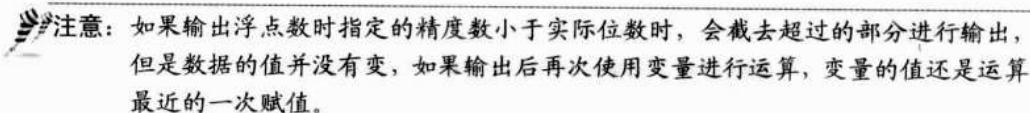 注意：如果输出浮点数时指定的精度数小于实际位数时，会截去超过的部分进行输出，
但是数据的值并没有变，如果输出后再次使用变量进行运算，变量的值还是运算
最近的一次赋值。